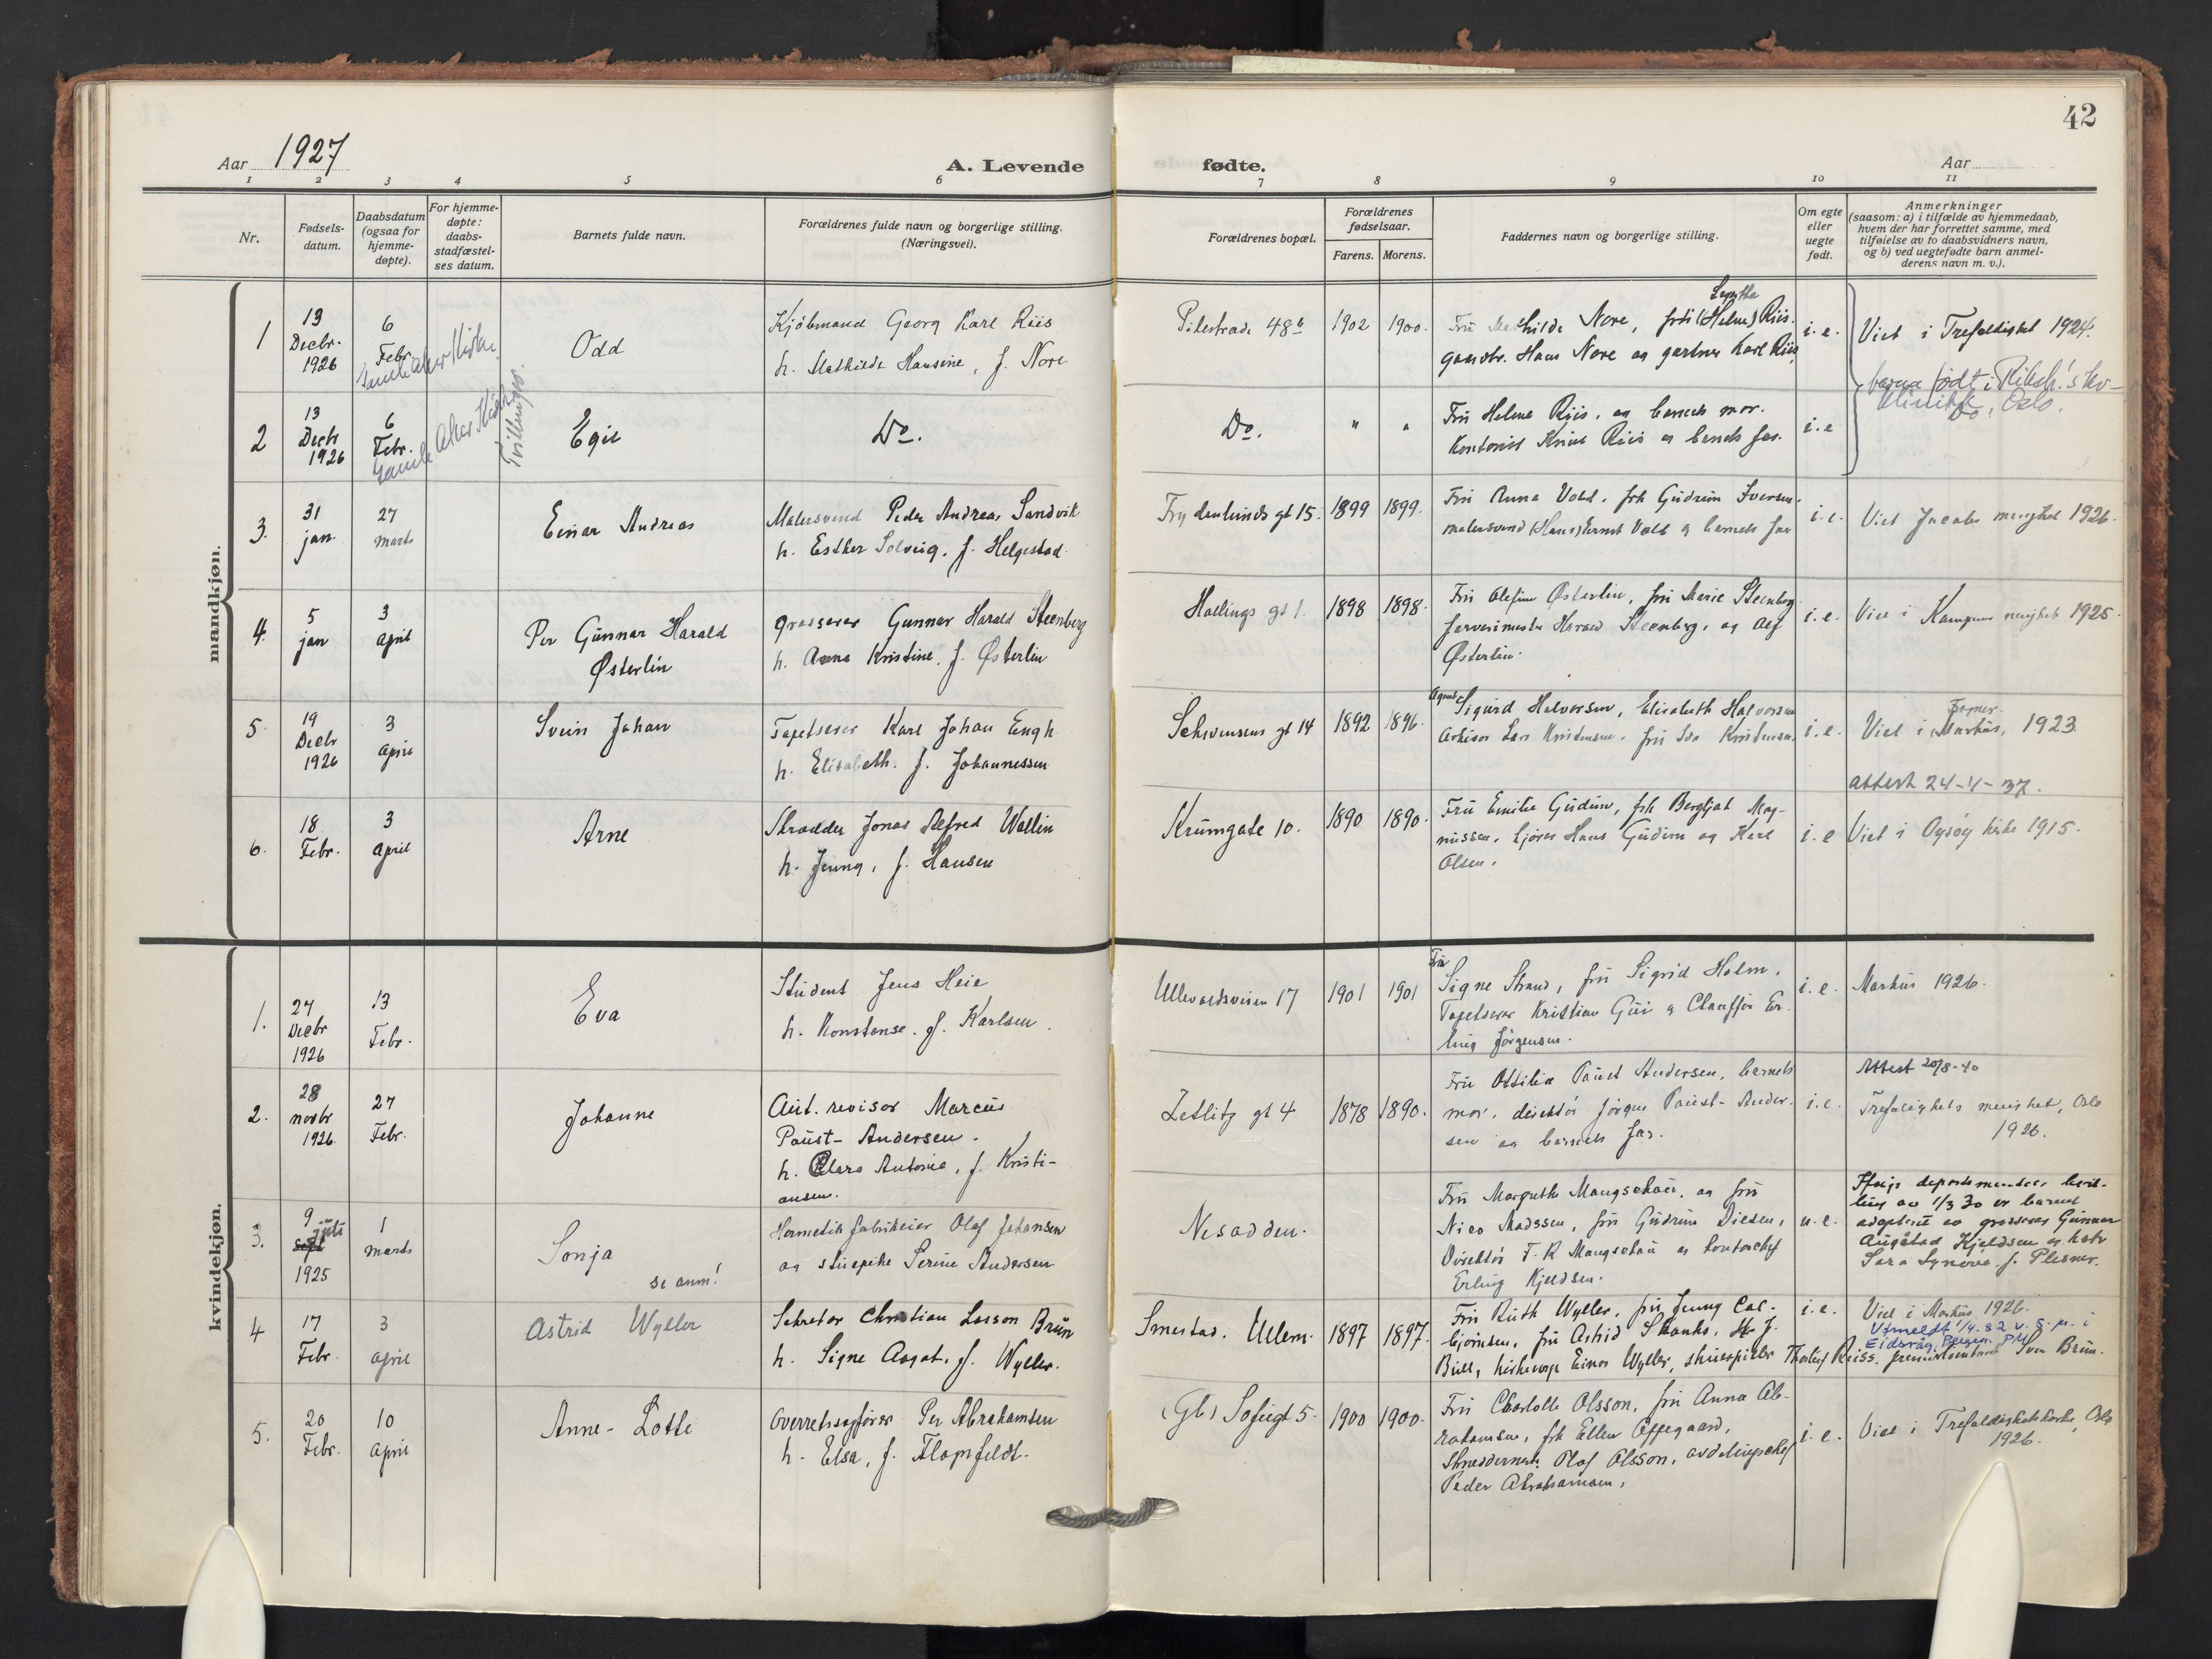 42
Aar 1927
A. Levende fødte.
Aar
1 2 3 4 5 6 7 8 9 10 11
Nr.
Fødsels-
datum.
Daabsdatum
(ogsaa for
hjemme-
døpte).
For hjemme-
døpte:
daabs-
stadfæstel-
ses datum.
Barnets fulde navn.
Forældrenes fulde navn og borgerlige stilling.
(Næringsvei).
Forældrenes bopæl.
Forældrenes
fødselsaar.
Farens. Morens.
Faddernes navn og borgerlige stilling.
Om egte
eller
uegte
født.
Anmerkninger
(saasom: a) i tilfælde av hjemmedaab,
hvem der har forrettet samme, med
tilføielse av to daabsvidners navn,
og b) ved uegtefødte barn anmel-
derens navn m. v.).
mandkjøn.
1
13
Decbr.
1926
6
Febr.
Gamle Aker Kirke.
Odd
Kjøbmand Georg Karl Riis
h. Mathilde Hansine, f. Nore
Pilestrade 48b
1902
1900.
Fru Mathilde Nore, (Helene) Riis.
gaardbr. Hans Nore og gartner Karl Riis
i. e.
Viet i Trefoldighet 1924.
barna født i Riksh.'s kv-
klinikk, Oslo.
2
13
Decbr
1926
6
Febr.
Gamle Aker Kirke
Tvillinger.
Egil
Do.
Do.
"
"
Fru Helene Riis. og barnets mor.
Kontorist Riis og barnets far.
i. e
Do
3.
31
jan.
27
marts
Einar Andreas
Malersvend Peder Andreas Sandvik
h. Esther Solveig. f. Helgestad.
Frydenlunds gt 15.
1899
1899.
Fru Anna Vold. frk Gudrun Iversen.
malersvend (Hans) Ernst Vold og barnets far
i. e.
Viet Jacobs menighet 1926.
4.
5
jan
3
april
Per Gunnar Harald
Østerlin
grosserer Gunnar Harald Steenberg
h. Anna Kristine. f. Østerlin
Hallings gt 1.
1898
1898.
Fru Olefine Østerlin, fru Marie Steenberg
farverimester Harald Steenberg, og Alf
Østerlin.
i. e.
Viet i Kampens menighet 1925.
5.
19
Decbr
1926
3
april
Svein Johan
Tapetserer Karl Johan Engh
h. Elisabeth. f. Johannessen
Schwensens gt 14
1892
1896.
Agent Sigurd Halvorsen, Elisabeth Halvorsen
Lars Kristensen. fru Ida Kristensen.
i. e.
Viet i Markus, 1923.
attest 24-4-37.
6.
18
Febr.
3
april
Arne
Skrædder Jonas Alfred Wallin
h. Jenny, f. Hansen
Krumgate 10.
1890
1890.
Fru Emilie Gudim, frk Bergljot Mag-
nussen, kjører Hans Gudim og Karl
Olsen.
i. e
Viet i kirke 1915.
kvindekjøn.
1.
24
Decbr
1926
13
Febr.
Eva
Student Jens Heie
h. Konstanse. f. Karlsen.
Ullevaalsveien 17
1901
1901
Fru
Signe Strand, fru Sigrid Holm.
Tapetserer Kristian og Chauffør Er-
ling Jørgensen.
i. e.
Markus 1926.
2.
28
novbr
1926.
27
Febr.
Johanne
Aut. revisor Marcus
Paust-Andersen.
h. Klara Antonie, f. Kristi-
ansen.
Zetlitz gt 4
1878
1890.
Fru Ottilie Paust Andersen, barnets
mor. direktør Jørgen Paust-Ander-
sen og barnets far.
i. e.
Attest 20/8-40
Trefoldighets menighet, Oslo
1926.
3.
9
sept juli
1925
1
marts
Sonja
se anm!
Hermetikfabrikeier Olaf Johansen
og stuepike Serine Andersen
Nesodden.
Fru Margrethe Maugschau, og fru
Nico Madssen, fru Gudrun Diesen,
Direktør F. R Maugschau og kontorchef
Erling Kjeldsen.
u. e.
departementets bevil-
ling av 1/3 30 er barnet
adoptert av grosserer Gunnar
Augstad Kjeldsen og hstr
Sara Synøve. f. Plesner.
4
17
Febr.
3
april
Astrid Wyller
Sekretær Christian Lasson Brun
h. Signe Aagot. f. Wyller.
Smestad. Ullern.
1897
1897.
Fru Ruth Wyller, fru Jenny Col-
bjørnsen, fru Astrid Skanke. Hr J.
Bull, kirkeverge Einar Wyller, skuespiller Thorleif Reiss. Sven Brun.
i. e.
Viet i Markus 1926.
Utmeldt 1/4.82 v. s. p. i
Eidsvåg, Bergen. PM
5.
20
Febr.
10
april
Anne-Lotte
Overretssagfører Per Abrahamsen
h. Elsa, f.
(Gb) Sofiegt 5.
1900
1900.
Fru Charlotte Olsson, fru Anna Ab-
rahamsen, frk Ellen Oppegaard,
Olaf Olsson, avdelingschef
Peder Abrahamsen.
i. e.
Viet i Trefoldighetskirke, Oslo
1926.